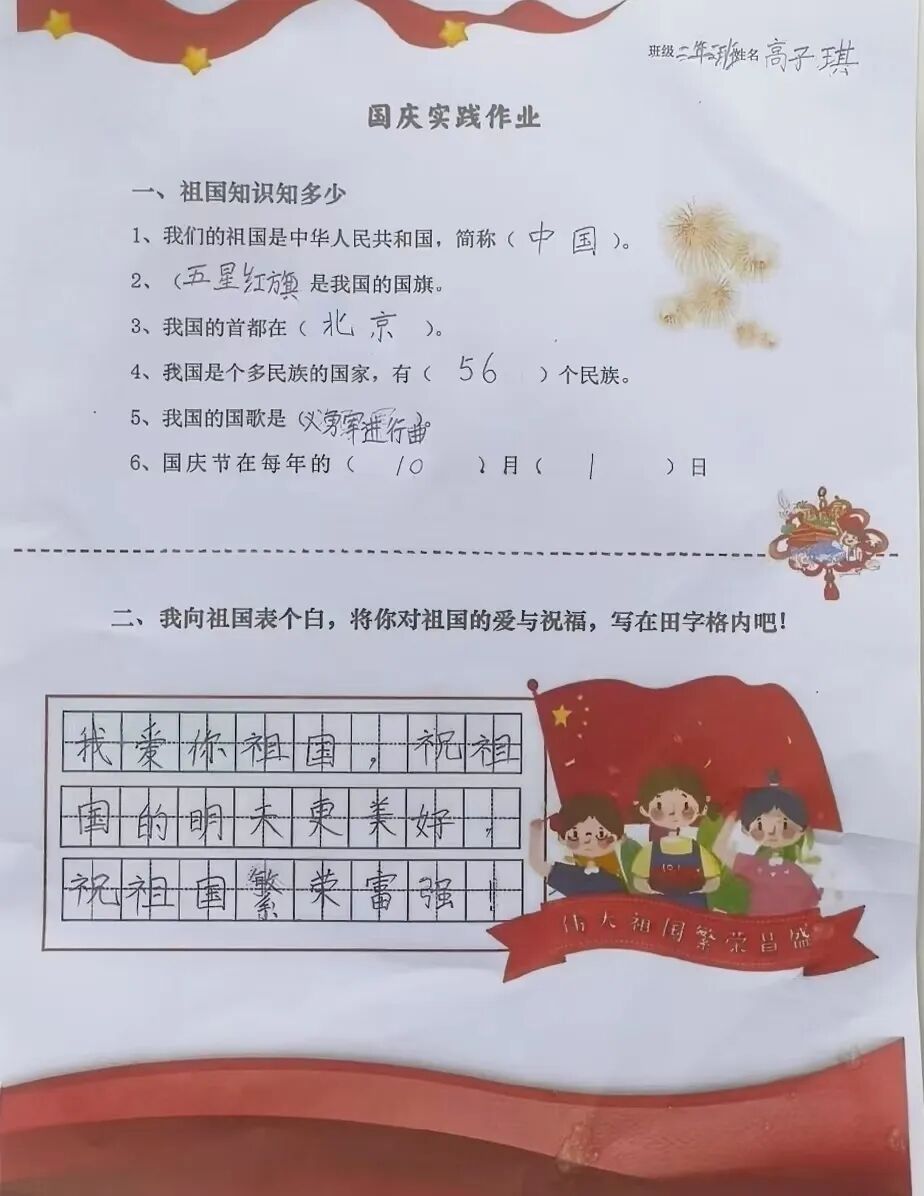 班级 二年2班 姓名 高子琪
国庆实践作业
一、祖国知识知多少
1、我们的祖国是中华人民共和国，简称（中国）。
2、（五星红旗 是我国的国旗。
3、我国的首都在（北京）。
4、我国是个多民族的国家，有（56）个民族。
5、我国的国歌是（义勇军进行曲）。
6、国庆节在每年的（10）月（1）日
二、我向祖国表个白，将你对祖国的爱与祝福，写在田字格内吧！
我爱你祖国，祝祖
国的明天更美好，
祝祖国繁荣富强！
伟大祖国繁荣昌盛